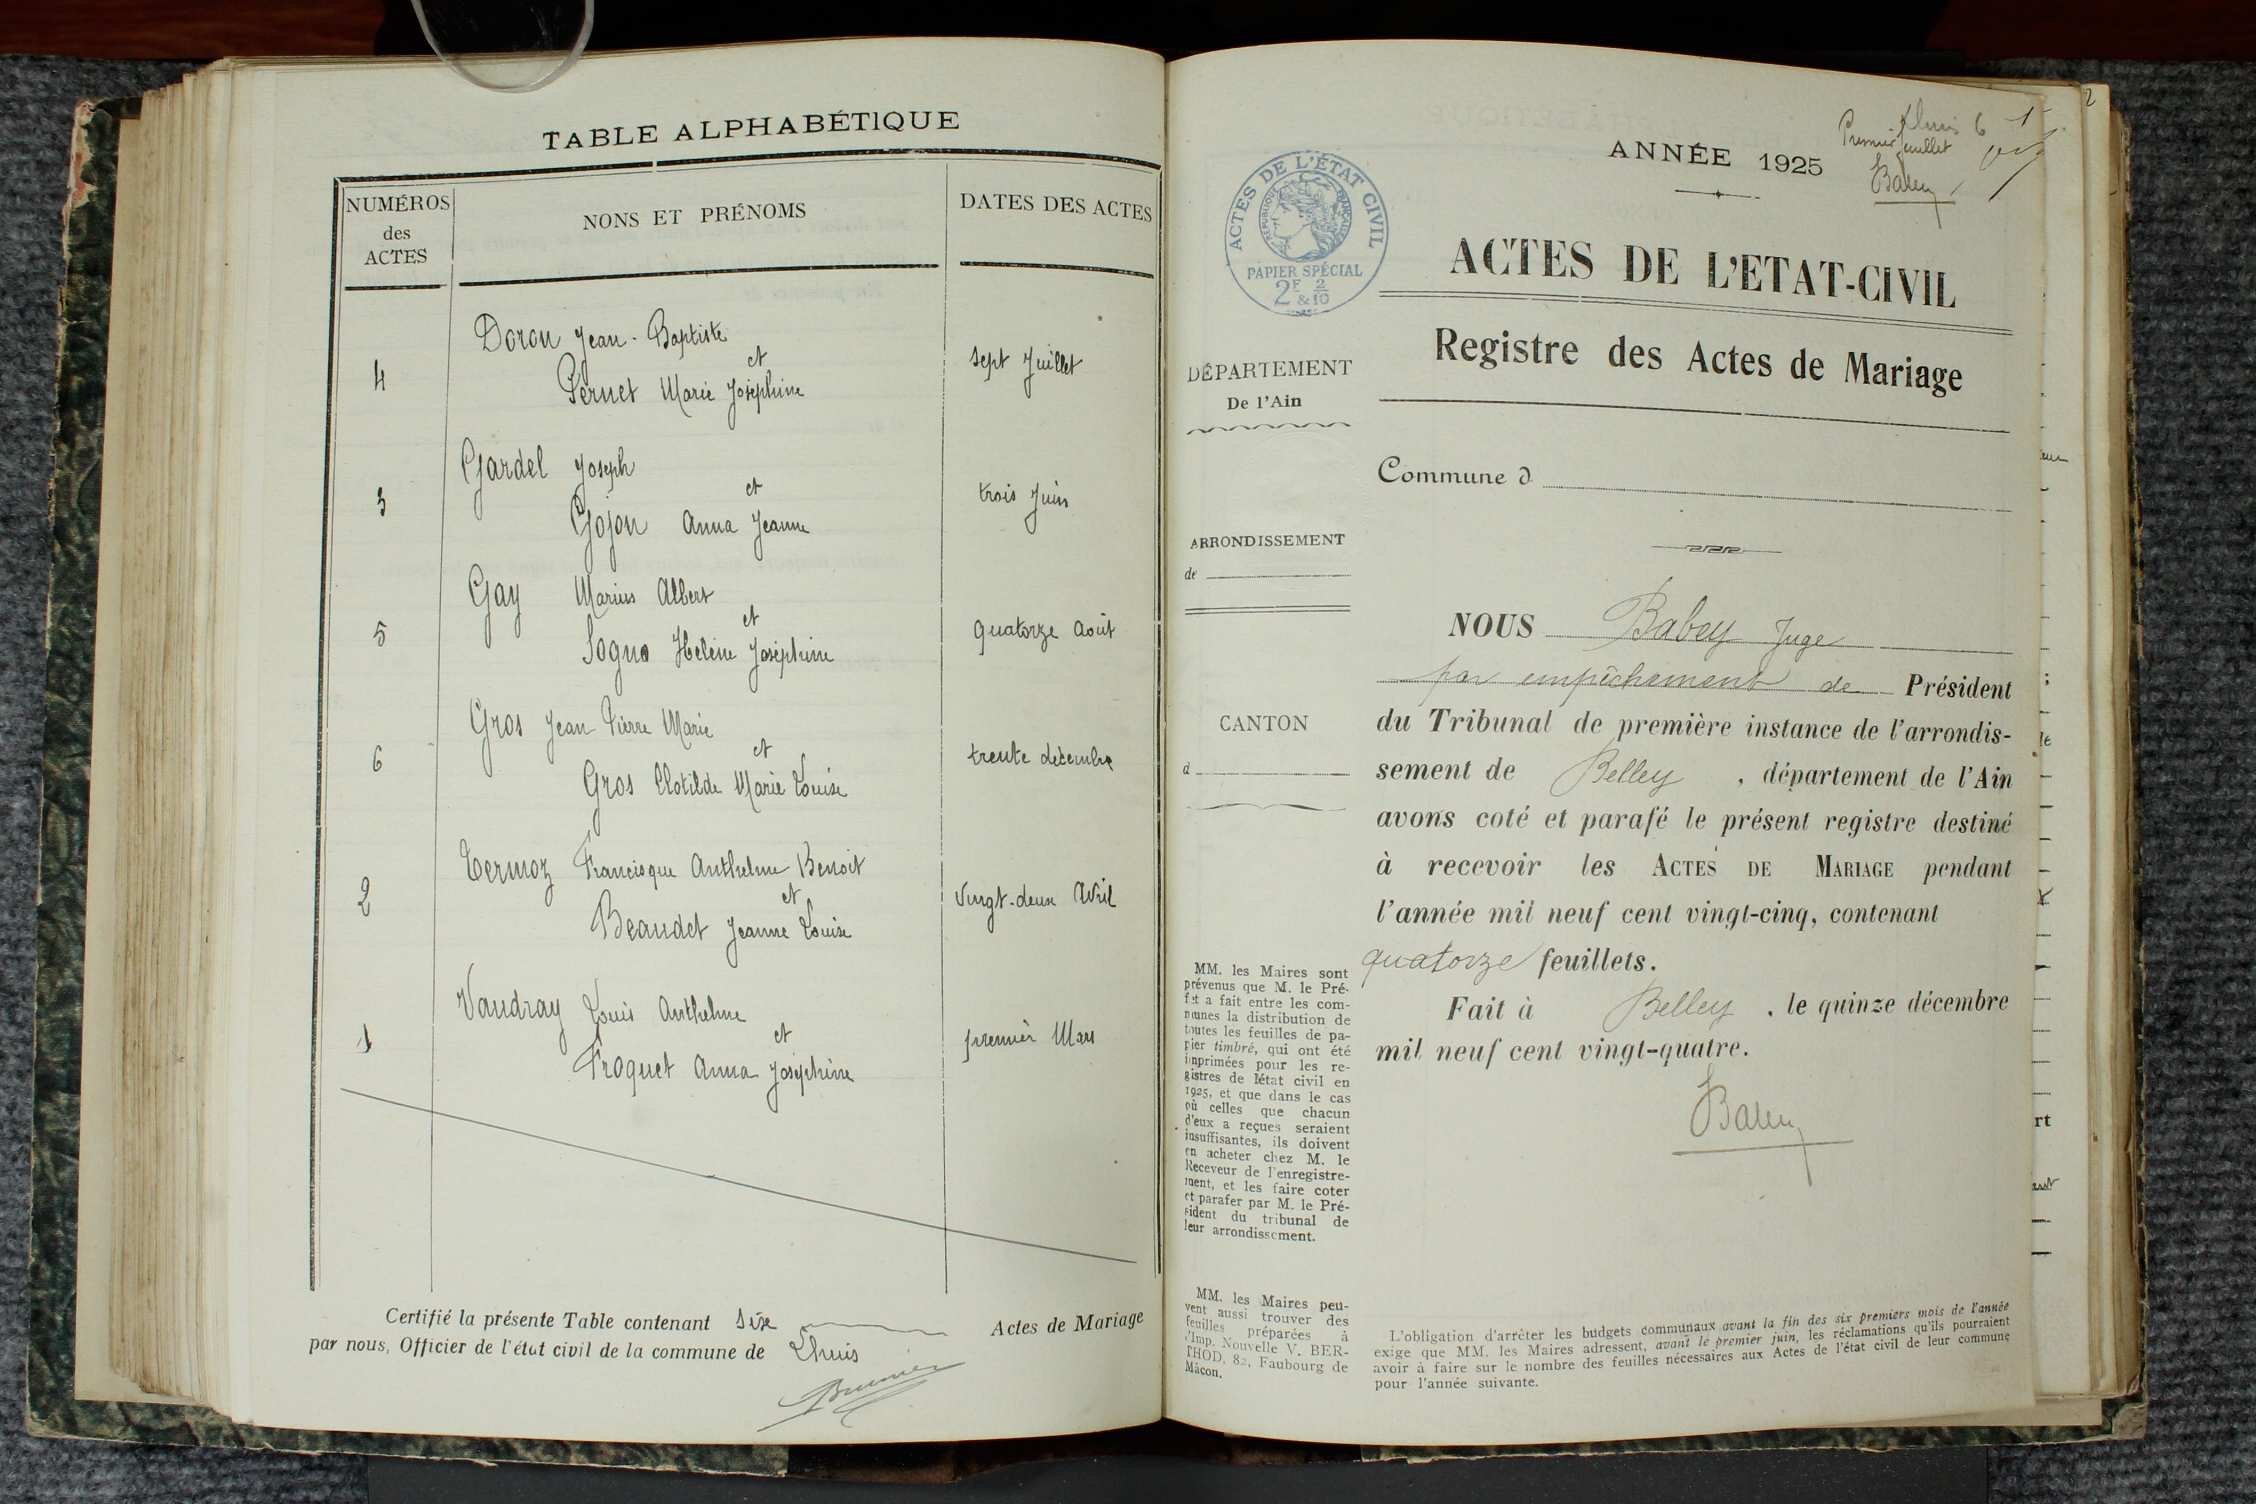 TABLE ALPHABÉTIQUE
NUMÉROS
des
ACTES
NONS ET PRÉNOMS
DATES DES ACTES
Doron Jean-Baptiste
et
4
Pernet Marie Joséphine
sept Juillet
Gardel Joseph
et
3
Gojon Anna Jeanne
trois Juin
Gay Marius Albert
et
5
Sogno Hélène Joséphine
quatorze Août
Gros Jean Pierre Marie
et
6
Gros Clotilde Marie Louise
trente décembre
Termoz Francisque Anthelme Benoit
et
2
Beaudet Jeanne Louise
Vingt-deux Avril
Vaudray Louis Anthelme
et
1
Froquet Anna Joséphine
premier Mars
Certifié la présente Table contenant six Actes de Mariage
par nous, Officier de l'état civil de la commune de Lhuis
ANNÉE 1925
Lhuis 6
1
Premier feuillet
Babey
ACTES DE L'ÉTAT CIVIL
RÉPUBLIQUE FRANÇAISE
PAPIER SPÉCIAL
2F & 2/10
ACTES DE L'ETAT-CIVIL
Registre des Actes de Mariage
DÉPARTEMENT
De l'Ain
ARRONDISSEMENT
de
CANTON
d
MM. les Maires sont
prévenus que M. le Pré-
fet a fait entre les com-
munes la distribution de
toutes les feuilles de pa-
pier timbré, qui ont été
imprimées pour les re-
gistres de létat civil en
1925, et que dans le cas
où celles que chacun
d'eux a reçues seraient
insuffisantes, ils doivent
en acheter chez M. le
Receveur de l'enregistre-
ment, et les faire coter
et parafer par M. le Pré-
sident du tribunal de
leur arrondissement.
MM. les Maires peu-
vent aussi trouver des
feuilles préparées à
l'Imp. Nouvelle V. BER-
THOD, 82, Faubourg de
Mâcon.
Commune d
NOUS Babey Juge
par empêchement de Président
du Tribunal de première instance de l'arrondis-
sement de Belley, département de l'Ain
avons coté et parafé le présent registre destiné
à recevoir les ACTES DE MARIAGE pendant
l'année mil neuf cent vingt-cinq, contenant
quatorze feuillets.
Fait à Belley, le quinze décembre
mil neuf cent vingt-quatre.
Babey
L'obligation d'arrêter les budgets communaux avant la fin des six premiers mois de l'année
exige que MM. les Maires adressent, avant le premier juin, les réclamations qu'ils pourraient
avoir à faire sur le nombre des feuilles nécessaires aux Actes de l'état civil de leur commune
pour l'année suivante.
2
rt